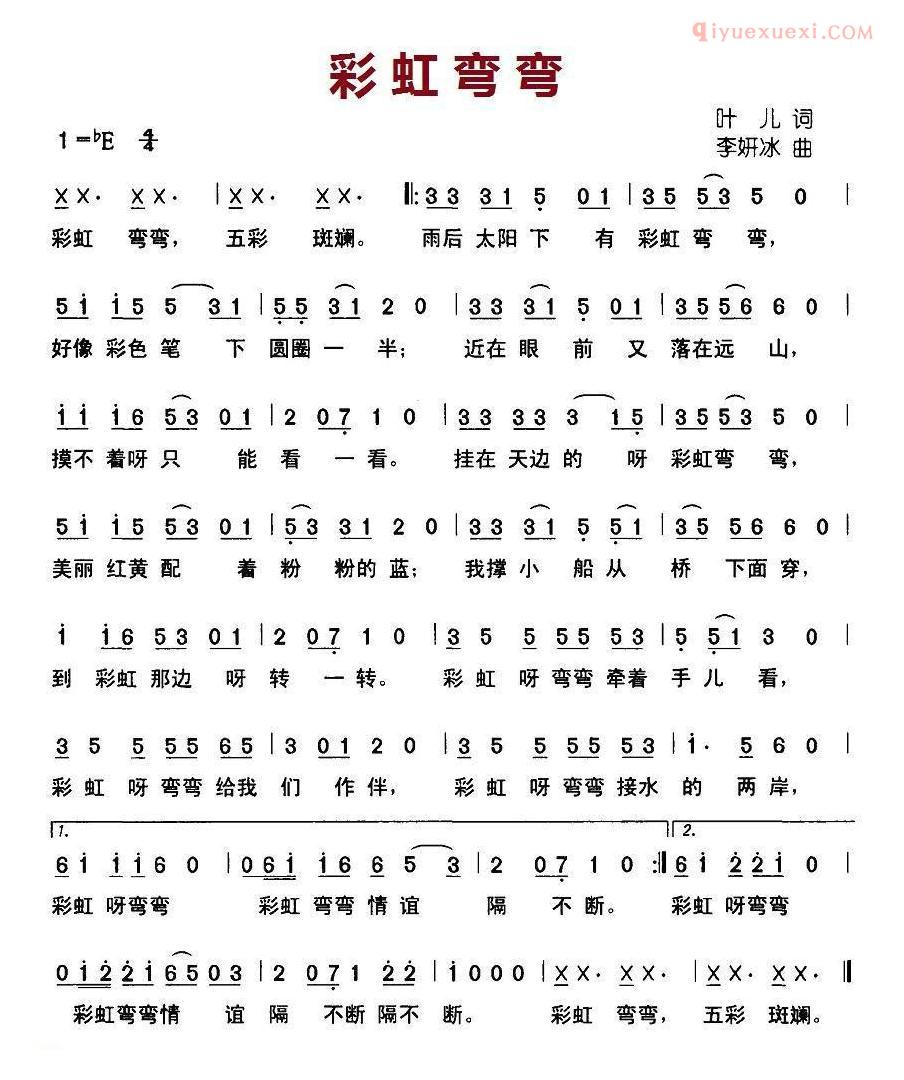 qiyuexuexi.COM
彩虹弯弯
1=♭E 4/4
叶儿 词
李妍冰 曲
X X· X X· | X X· X X· ‖: 3 3 3 1 5 0 1 | 3 5 5 3 5 0 |
彩虹 弯弯， 五彩 斑斓。 雨后 太阳 下 有 彩虹 弯 弯，
5 i i 5 5 3 1 | 5 5 3 1 2 0 | 3 3 3 1 5 0 1 | 3 5 5 6 6 0 |
好像 彩色 笔 下 圆圈 一 半； 近在 眼 前 又 落在远 山，
i i i 6 5 3 0 1 | 2 0 7 1 0 | 3 3 3 3 3 1 5 | 3 5 5 3 5 0 |
摸不 着呀 只 能 看 一 看。 挂在 天边 的 呀 彩虹 弯 弯，
5 i i 5 5 3 0 1 | 5 3 3 1 2 0 | 3 3 3 1 5 5 1 | 3 5 5 6 6 0 |
美丽 红黄 配 着 粉 粉的 蓝； 我撑 小 船 从 桥 下面 穿，
i i 6 5 3 0 1 | 2 0 7 1 0 | 3 5 5 5 5 5 3 | 5 5 1 3 0 |
到 彩虹 那边 呀 转 一 转。 彩 虹 呀 弯弯 牵着 手 儿 看，
3 5 5 5 5 6 5 | 3 0 1 2 0 | 3 5 5 5 5 5 3 | i· 5 6 0 |
彩 虹 呀 弯弯 给我 们 作 伴， 彩 虹 呀 弯弯 接水 的 两 岸，
1. 2.
6 i i i 6 0 | 0 6 i i 6 6 5 3 | 2 0 7 1 0 :‖ 6 i 2 2 i 0 |
彩虹 呀弯弯 彩虹 弯弯 情 谊 隔 不 断。 彩虹 呀弯弯
0 i 2 2 i 6 5 0 3 | 2 0 7 1 2 2 | i 0 0 0 | X X· X X· | X X· X X· ‖
彩虹弯弯情 谊 隔 不断 隔不 断。 彩虹 弯弯， 五彩 斑斓。